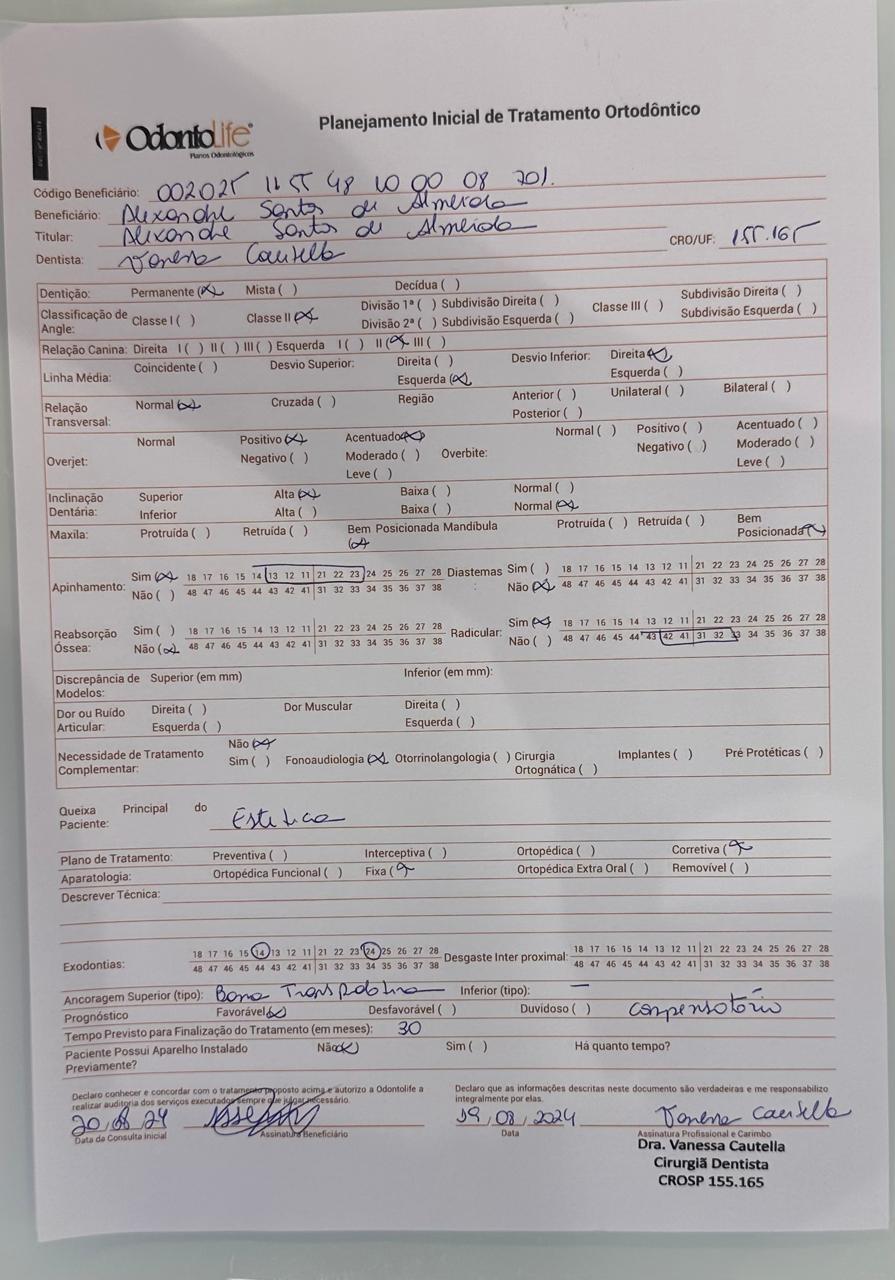 OdontoLife
Planos Odontológicos
Planejamento Inicial de Tratamento Ortodôntico
Código Beneficiário: 002025 1155 48 10 00 08 701.
Beneficiário: Alexandre Santos de Almeida
Titular: Alexandre Santos de Almeida
Dentista: Vanessa Cautella CRO/UF: 155.165
Dentição: Permanente (x) Mista ( ) Decídua ( )
Classificação de Angle: Classe I ( ) Classe II (x) Divisão 1ª ( ) Subdivisão Direita ( ) Classe III ( ) Subdivisão Direita ( )
Divisão 2ª ( ) Subdivisão Esquerda ( ) Subdivisão Esquerda ( )
Relação Canina: Direita I ( ) II ( ) III ( ) Esquerda I ( ) II (x) III ( )
Linha Média: Coincidente ( ) Desvio Superior: Direita ( ) Desvio Inferior: Direita (x)
Esquerda (x) Esquerda ( )
Relação Transversal: Normal (x) Cruzada ( ) Região Anterior ( ) Unilateral ( ) Bilateral ( )
Posterior ( )
Overjet: Normal Positivo (x) Acentuado (x) Overbite: Normal ( ) Positivo ( ) Acentuado ( )
Negativo ( ) Moderado ( ) Negativo ( ) Moderado ( )
Leve ( ) Leve ( )
Inclinação Dentária: Superior Alta (x) Baixa ( ) Normal ( )
Inferior Alta ( ) Baixa ( ) Normal (x)
Maxila: Protruída ( ) Retruída ( ) Bem Posicionada (x) Mandíbula Protruída ( ) Retruída ( ) Bem Posicionada (x)
Apinhamento: Sim (x) 18 17 16 15 14 13 12 11 21 22 23 24 25 26 27 28 Diastemas: Sim ( ) 18 17 16 15 14 13 12 11 21 22 23 24 25 26 27 28
Não ( ) 48 47 46 45 44 43 42 41 31 32 33 34 35 36 37 38 Não (x) 48 47 46 45 44 43 42 41 31 32 33 34 35 36 37 38
Reabsorção Óssea: Sim ( ) 18 17 16 15 14 13 12 11 21 22 23 24 25 26 27 28 Radicular: Sim (x) 18 17 16 15 14 13 12 11 21 22 23 24 25 26 27 28
Não (x) 48 47 46 45 44 43 42 41 31 32 33 34 35 36 37 38 Não ( ) 48 47 46 45 44 43 42 41 31 32 33 34 35 36 37 38
Discrepância de Modelos: Superior (em mm) Inferior (em mm):
Dor ou Ruído Articular: Direita ( ) Dor Muscular Direita ( )
Esquerda ( ) Esquerda ( )
Necessidade de Tratamento Complementar: Não (x)
Sim ( ) Fonoaudiologia (x) Otorrinolangologia ( ) Cirurgia Ortognática ( ) Implantes ( ) Pré Protéticas ( )
Queixa Principal do Paciente: Estetica
Plano de Tratamento: Preventiva ( ) Interceptiva ( ) Ortopédica ( ) Corretiva (x)
Aparatologia: Ortopédica Funcional ( ) Fixa (x) Ortopédica Extra Oral ( ) Removível ( )
Descrever Técnica:
Exodontias: 18 17 16 15 14 13 12 11 21 22 23 24 25 26 27 28 Desgaste Inter proximal: 18 17 16 15 14 13 12 11 21 22 23 24 25 26 27 28
48 47 46 45 44 43 42 41 31 32 33 34 35 36 37 38 48 47 46 45 44 43 42 41 31 32 33 34 35 36 37 38
Ancoragem Superior (tipo): Barra Transpalatina Inferior (tipo): —
Prognóstico Favorável (x) Desfavorável ( ) Duvidoso ( ) compensatório
Tempo Previsto para Finalização do Tratamento (em meses): 30
Paciente Possui Aparelho Instalado Previamente? Não (x) Sim ( ) Há quanto tempo?
Declaro conhecer e concordar com o tratamento proposto acima e autorizo a Odontolife a realizar auditoria dos serviços executados sempre que julgar necessário.
Declaro que as informações descritas neste documento são verdadeiras e me responsabilizo integralmente por elas.
20, 08, 24 19, 08, 2024 Vanessa Cautella
Data da Consulta Inicial Assinatura Beneficiário Data Assinatura Profissional e Carimbo
Dra. Vanessa Cautella
Cirurgiã Dentista
CROSP 155.165